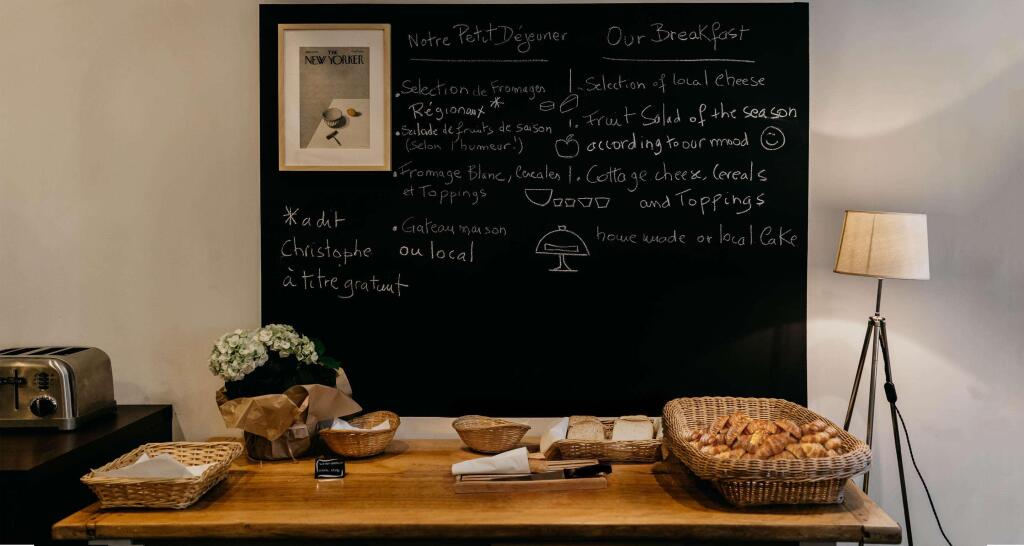 THE
NEW YORKER
Notre Petit Déjeuner
Selection de Fromages
Régionaux *
Salade de fruits de saison
(selon l'humeur!)
Fromage Blanc, Cereales
et Toppings
Gateau maison
ou local
*a dit
Christophe
à titre gratuit
Our Breakfast
Selection of local cheese
Fruit Salad of the season
according to our mood
Cottage cheese, Cereals
and Toppings
home made or local Cake